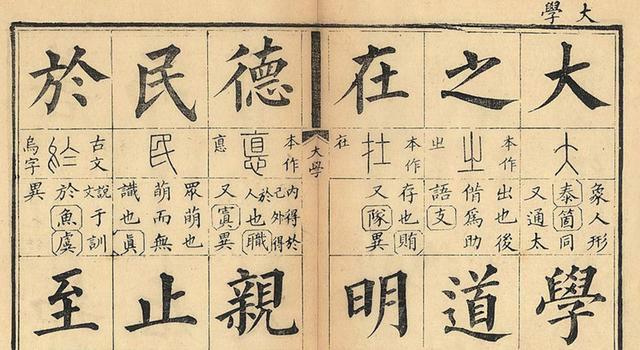 大學
大
象人形
泰箇同
又通太
學
之
本作㞢
出也後
偕爲助
語支
道
在
本作在
存也賄
又隊異
明
大學
德
本作悳
内得於己外得於人也職
又寘異
親
民
眾萌也
萌而無
識也眞
止
於
古文烏字
說文于訓
於魚虞
異
至